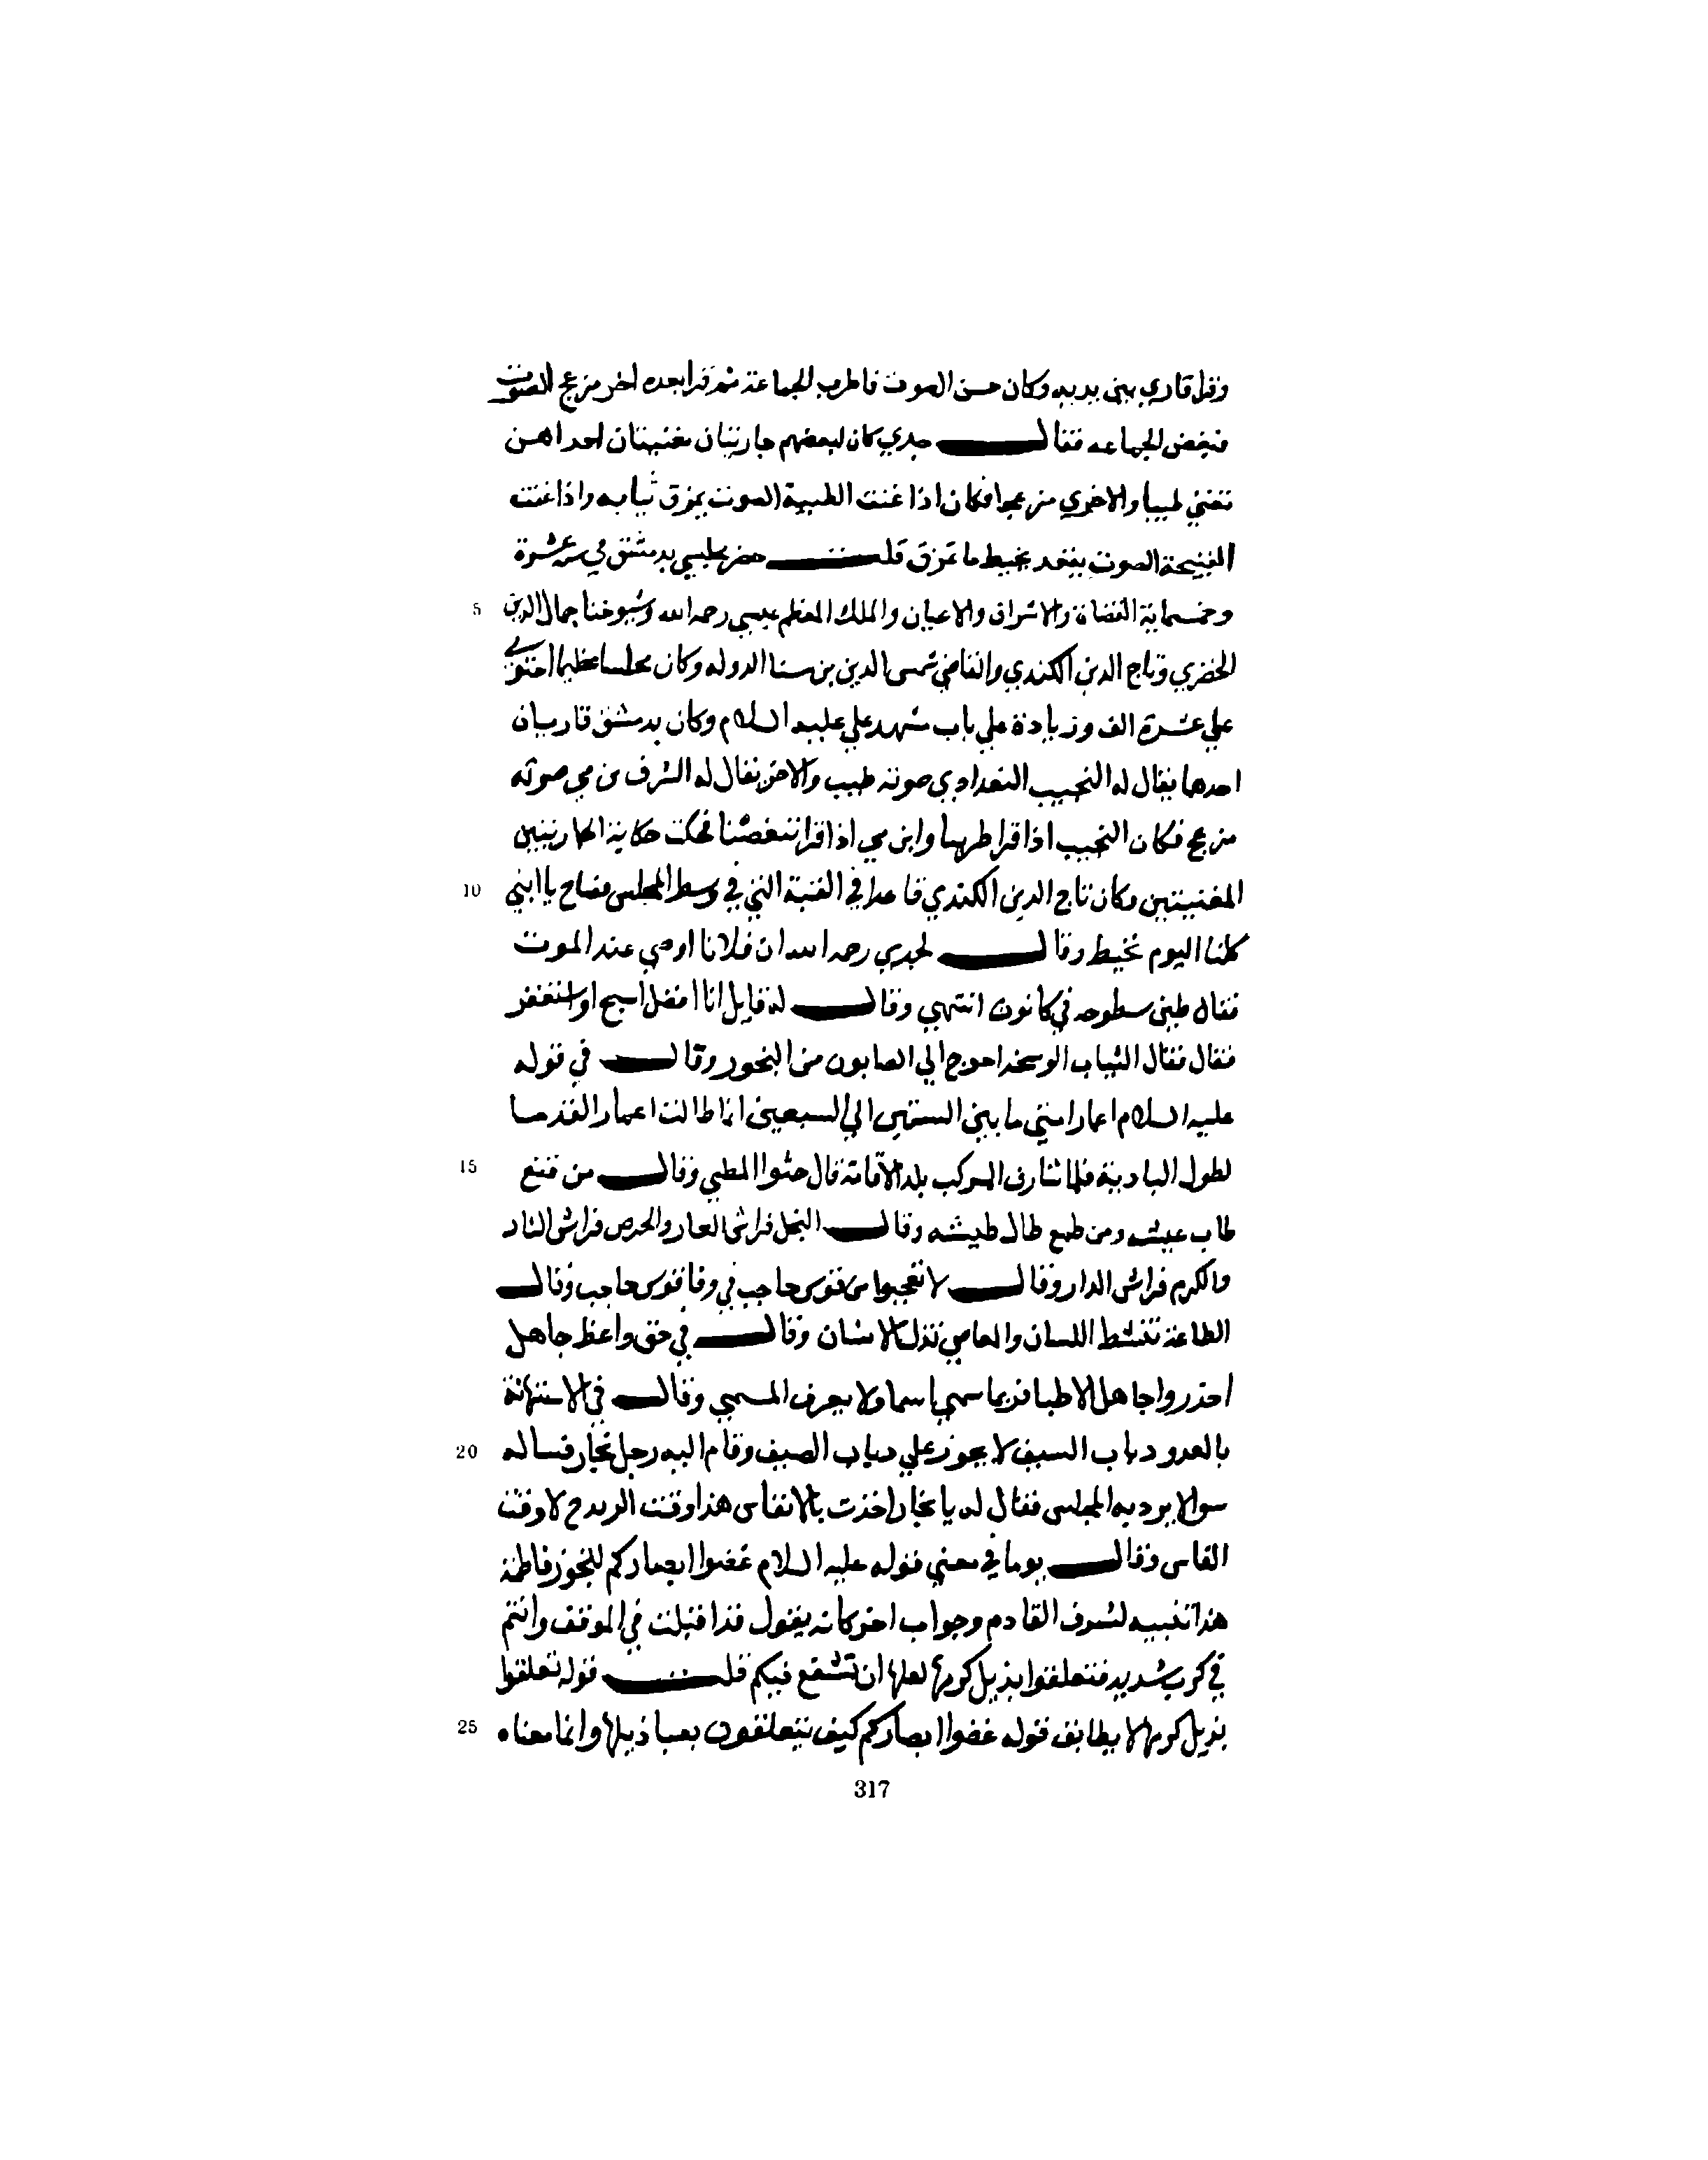 وقرا قاري بين يديه وكان حسن الصوت فاطرب الجماعة ثم قرا بعده اخر مزعج الصوت
فنغص الجماعه فقال جدي كان لبعضهم جاريتان مغنيتان احداهن
تغني طيبا والاخري مزعجا فكان اذا غنت الطيبة الصوت يمزق ثيابه واذا غنت
القبيحة الصوت يقعد يخيط ما تمزق قلت حضر مجلسي بدمشق في سنة عشرة
5 وخمسماية القضاة والاشراف والاعيان والملك المعظم عيسي رحمه الله وشيوخنا جمال الدين
الحضري وتاج الدين الكندي والقاضي شمس الدين بن سنا الدوله وكان مجلسا عظيما احتوي
علي عشرة الف وزيادة علي باب مشهد علي عليه السلام وكان بدمشق قاريان
احدهما يقال له النجيب البغدادي صوته طيب والاخر يقال له الشرف بن مي صوته
مزعج فكان النجيب اذا قرا طربنا وابن مي اذا قرا تنغصنا فحكت حكاية الجاريتين
10 المغنيتين وكان تاج الدين الكندي قاعدا في القبة التي في وسط المجلس فصاح يا ابني
كلنا اليوم نخيط وقال لجدي رحمه الله ان فلانا اوصي عند الموت
فقال طين سطوحه في كانون انتهي وقال له قايل انا افضل اسبح او استغفر
فقال فقال الثياب الوسخه احوج الي الصابون من البخور وقال في قوله
عليه السلام اعمار امتي ما بين الستين الي السبعين انما طالت اعمار القدما
15 لطول البادية فلما شارف الركب بلد الاقامة قال حثوا المطي وقال من قنع
طاب عيشه ومن طمع طال طيشه وقال البخل فراش العار والحرص فراش النار
والكرم فراش الدار وقال لا تعجبوا من قوس حاجب في وفا قوس حاجب وقال
الطاعة تنشط اللسان والمعاصي تذل الانسان وقال في حق واعظ جاهل
احذروا جاهل الاطبا فربما سمي باسما ولا يعرف المسمي وقال في الاستهانة
20 بالعدو دباب السيف لا يجوز علي دباب الصيف وقام اليه رجل نجار فساله
سوالا برد به المجلس فقال له يا نجار اخذت بالانفاس هذا وقت الردح لا وقت
الفاس وقال يوما في معني قوله عليه السلام غضوا ابصاركم لتجوز فاطمة
هذا تنبيه لشرف القادم وجواب اخر كانه يقول فذا قبلت في الموقف وانتم
في كرب شديد فتعلقوا بذيل كرمها لعلها ان تشفع فيكم قلت قوله تعلقوا
25 بذيل كرمها لا يطابق قوله غضوا ابصاركم كيف يتعلقون بصبا ذيلها وانما معناه
317